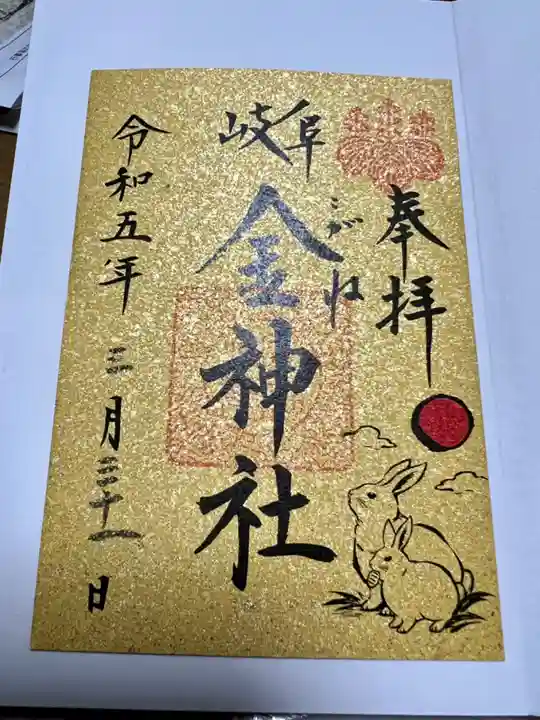 奉拝
岐阜
こがね
金神社
令和五年 三月三十一日